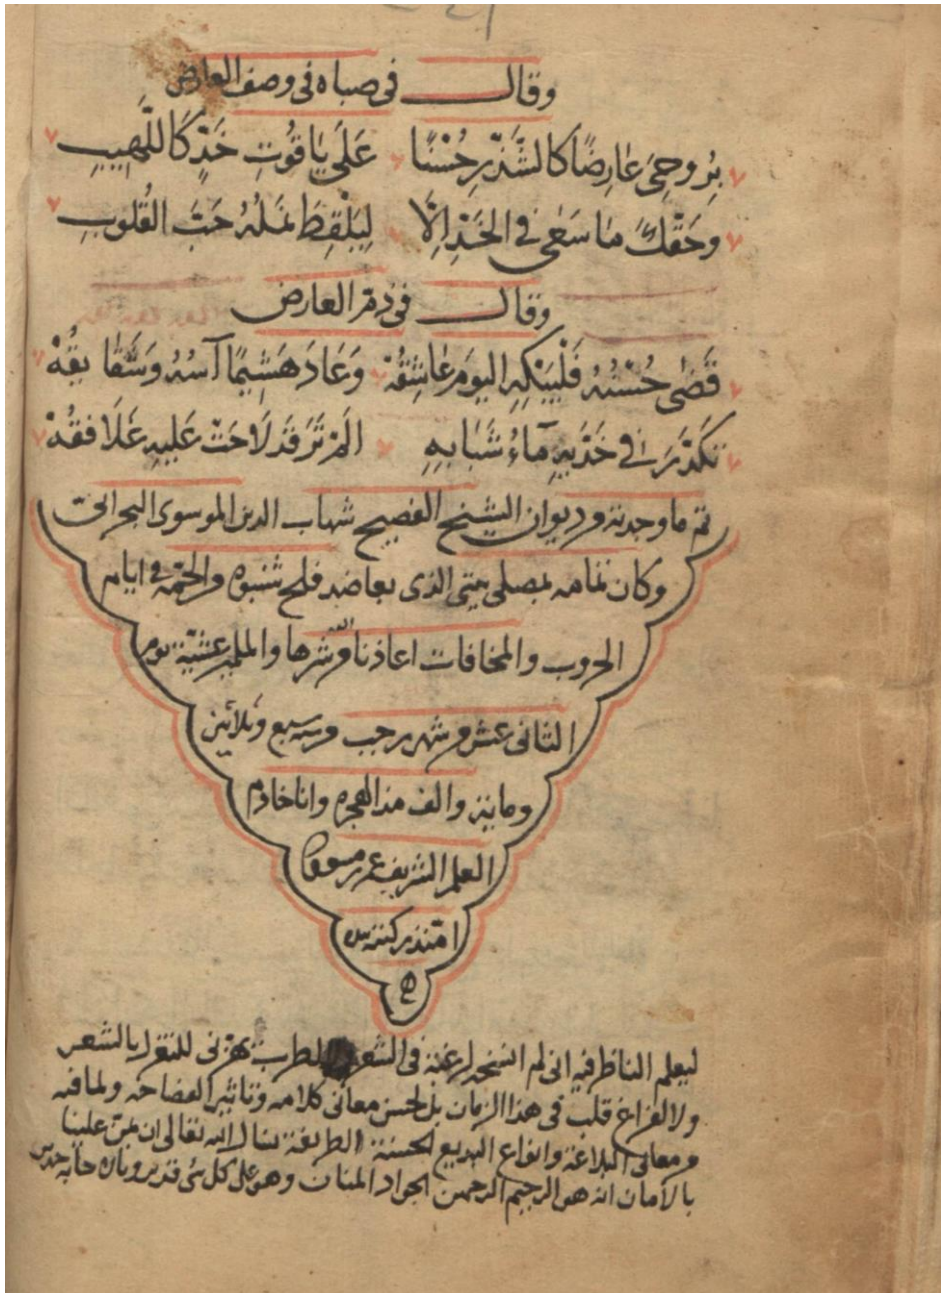 وقال في صباه في وصف العارض
بروحي عارضا كالشذر حسنا على ياقوت خد كاللهيب
وحقك ما سعى في الخد الا ليلقط نمله حب القلوب
وقال في ذم العارض
قضى حسنه فليبكه اليوم عاشقه وعاد هشيما آسه وشقايقه
تكدر من في خديه مآء شبابه الم تر قد لاحت عليه علافقه
تم ما وجدته من ديوان الشيخ الفصيح شهاب الدين الموسوي البحراني
وكان تمامه بمصلى بيتي الذي والحتمة في ايام
الحروب والمخافات اعاذنا الله من شرها والملمة عشية يوم
الثاني عشر من شهر رجب من سنة سبع وثلاثين
وماية والف من الهجرة وانا خادم
العلم الشريف

ليعلم الناظر فيه اني لم انسخه لرغبة في الشعر للطرب يهزني للتغزل بالشعر
ولا لفراغ قلب في هذا الزمان بل لحسن معاني كلامه وتاثير الفصاحة ولما فيه
من معاني البلاغة وانواع البديع الحسنة الطريقة نسال الله تعالى ان يمن علينا
بالامان انه هو الرحيم الرحمن الجواد المنان وهو على كل شئ قدير